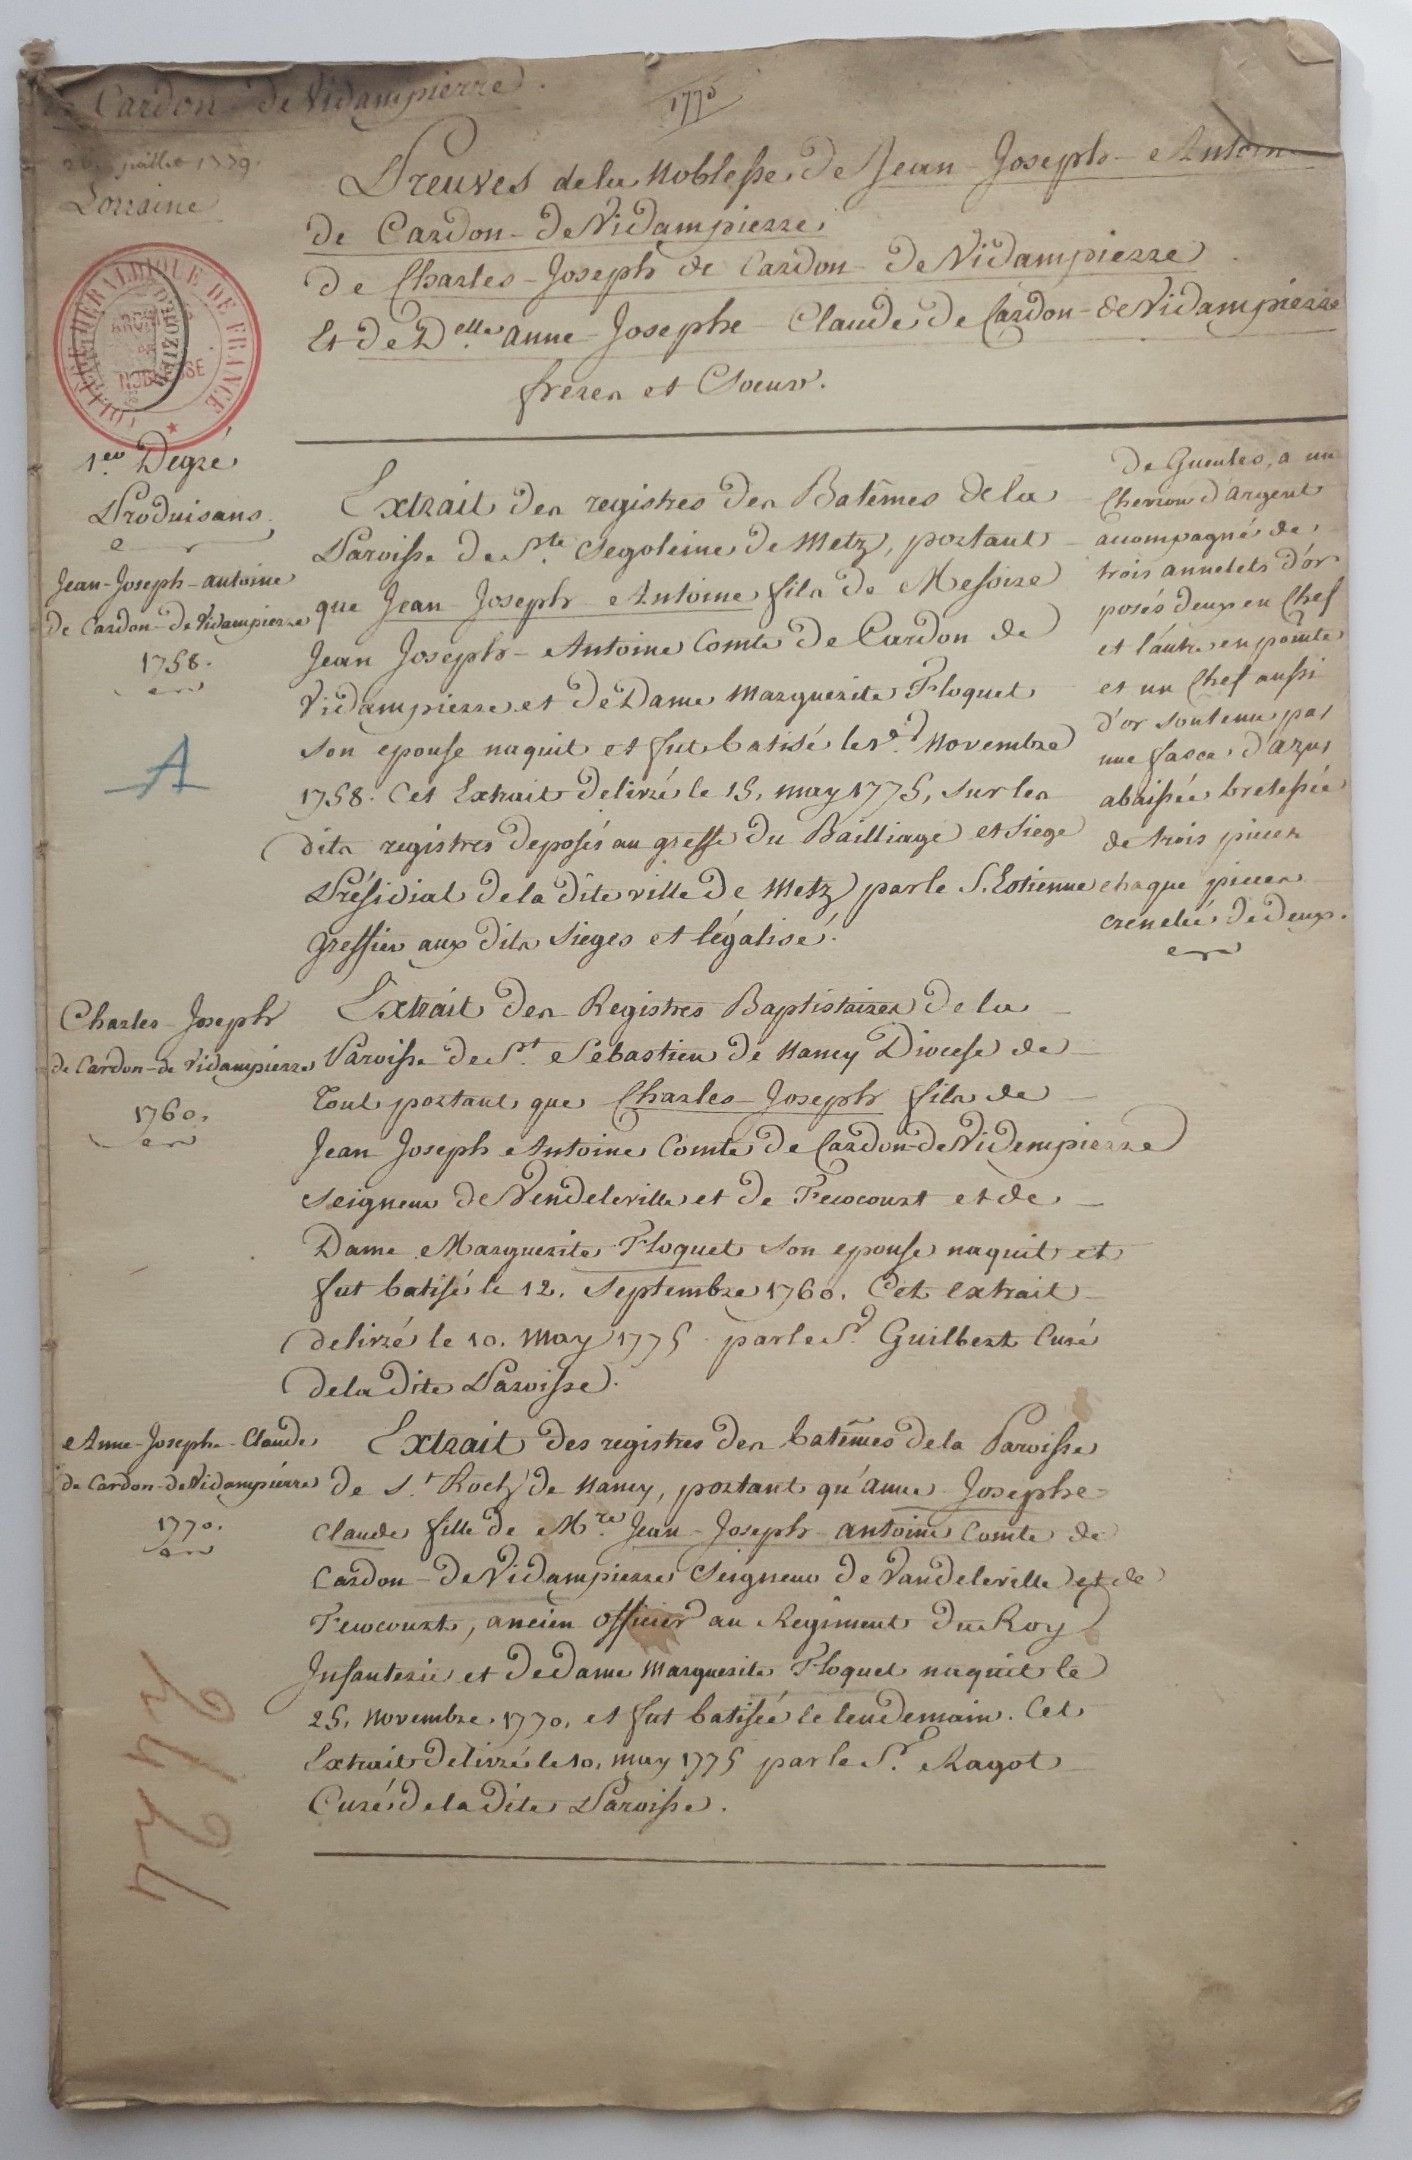 de Cardon de Vidampierre.
1775
26 juillet 1779.
Lorraine
Preuves de la Noblesse de Jean-Joseph-Antoine
de Cardon-de Vidampierre,
de Charles-Joseph de Cardon-de Vidampierre
Et de Delle anne-Josephe-Claude de Cardon-de Vidampierre
freres et Soeur.
COLLEGE HERALDIQUE DE FRANCE
D'HOZIER
NOBLESSE
1er Degré
Produisans.
Jean-Joseph-antoine
de Cardon-de Vidampierre
1758.
A
Extrait des registres des Batêmes de la
Paroisse de Ste Segoleine de Metz, portant
que Jean-Joseph-Antoine fils de Messire
Jean Joseph-Antoine Comte de Cardon de
Vidampierre et de Dame Marguerite Floquet
son epouse naquit et fut batisé le Novembre
1758. Cet Extrait delivré le 15. may 1775, sur les
dits registres deposés au greffe du Bailliage et Siege
Présidial de la dite ville de Metz par le S. Estienne
greffier aux dits Sieges et légalisé.
de Gueules, a un
Chevron d'argent
accompagné de
trois annelets d'or
posés deux en Chef
et l'autre en pointe
et un Chef aussi
d'or soutenu par
une fasce d'azur
abaissée bretessée
de trois pieces
chaque pieces
crenelée de deux.
Charles-Joseph
de Cardon-de Vidampierre
1760.
Extrait des Registres Baptistaires de la
Paroisse de St Sebastien de Nancy Diocese de
Toul portant que Charles-Joseph fils de
Jean Joseph Antoine Comte de Cardon-de Vidempierre
Seigneur de Vendeleville et de Fecocourt et de
Dame Marguerite Floquet son epouse naquit et
fut batisé le 12. Septembre 1760. Cet extrait
delivré le 10. May 1775. par le Sr Guilbert Curé
de la dite Paroisse.
Anne-Josephe-Claude
de Cardon-de Vidampierre
1770.
Extrait des registres des batêmes de la Paroisse
de St Roch de Nancy, portant qu'anne Josephe
Claude fille de Mre Jean-Joseph-antoine Comte de
Cardon-de Vidampierre Seigneur de Vandeleville et de
Fecocourt, ancien officier au Regiment du Roy
Infanterie et de dame Marguerite Floquet naquit le
25. Novembre. 1770. et fut batisée le lendemain. Cet
Extrait delivré le 10. may 1775 par le Sr Ragot
Curé de la dite Paroisse.